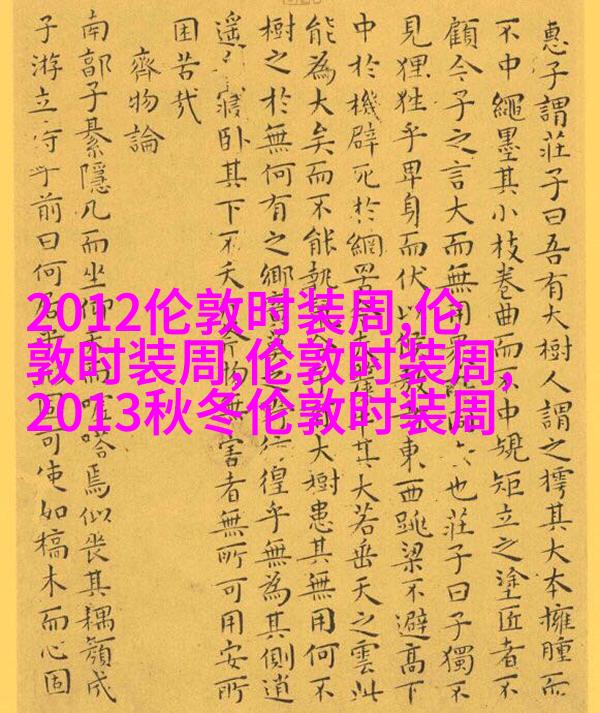 惠子謂莊子曰吾有大樹人謂之樗其大本擁腫而
不中繩墨其小枝卷曲而不中規矩立之塗匠者不
顧今子之言大而無用眾也莊子曰子獨不
見狸狌乎卑身而伏以候敖者東西跳梁不避高下
中於機辟死於網罟牛其大若垂天之雲此
能為大矣而不能執子大樹患其無用何不
樹之於無何有之鄉莫之徨乎無為其側逍
遙寢臥其下不夭物無害者無所可用安所
困苦哉
齊物論
南郭子綦隱几而坐仰天而噓嗒焉似喪其耦顏成
子游立侍乎前曰何居固可使如槁木而心固
2012伦敦时装周,伦
敦时装周,伦敦时装周,
2013秋冬伦敦时装周